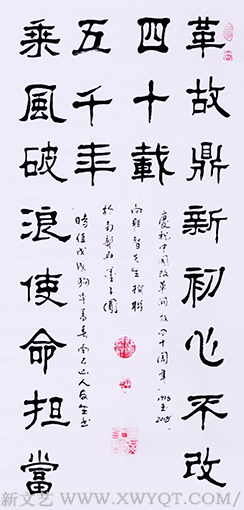 革故鼎新初心不改
四十載
乘風破浪使命担當
五千年
慶祝中国改革開放四十周年 1978至2018
先生撰聯
時值戊戌狗年
新文艺 www.xwyqt.com